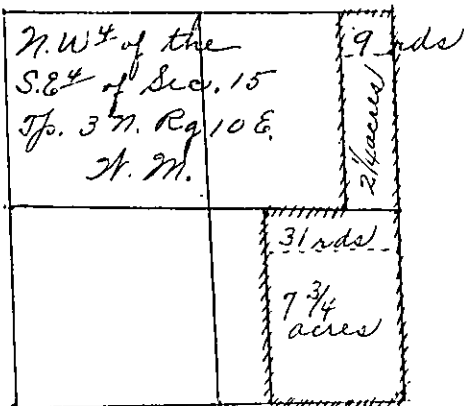 N.W 4 of the
S.E 4 of Sec. 15
Tp. 3 N. Rg 10 E.
W. M.
9 rds
2 1/4 acres
31 rds
7 3/4
acres